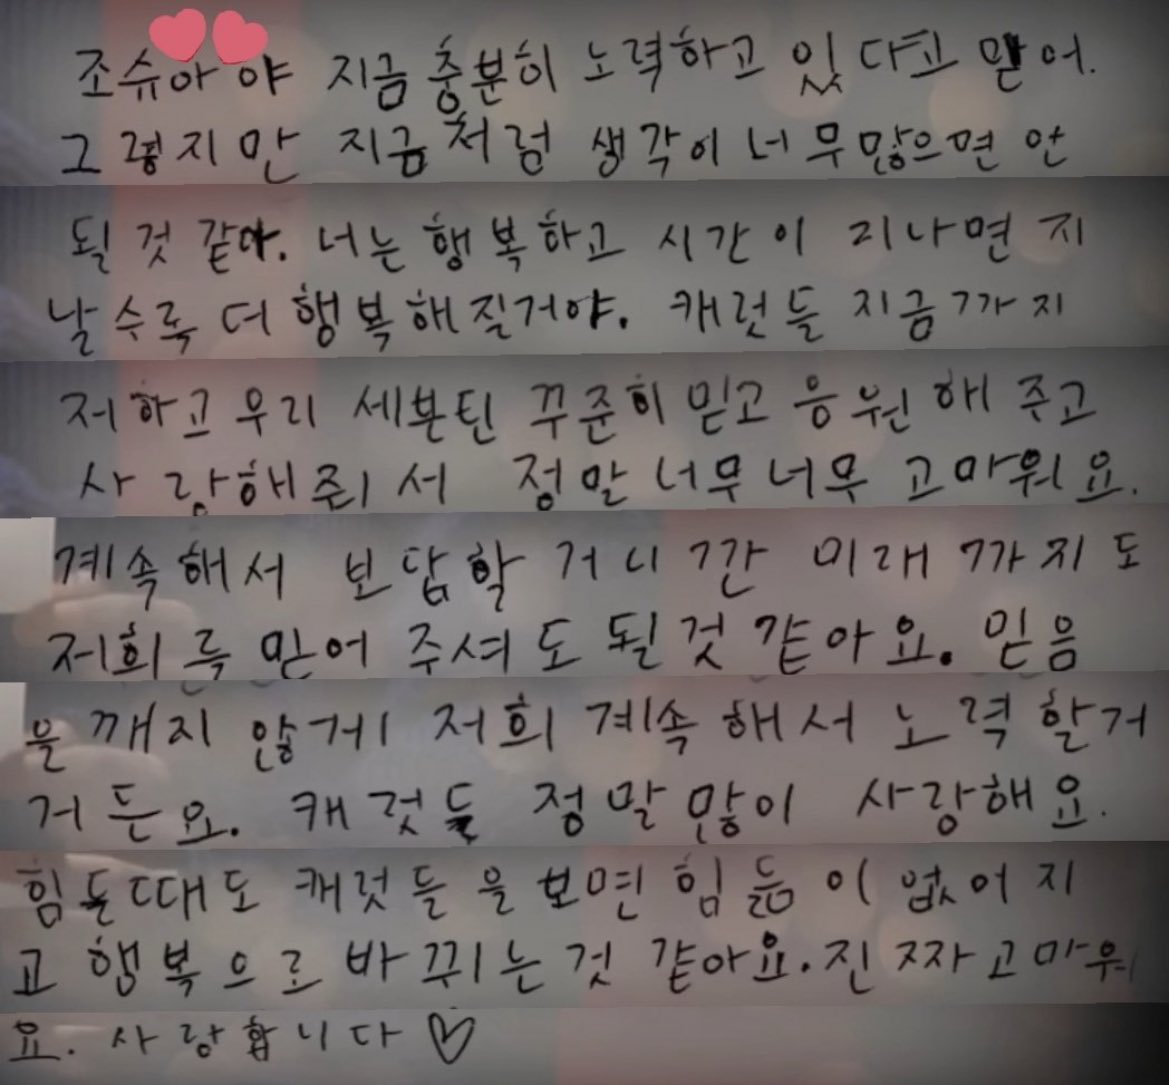 조슈아야 지금 충분히 노력하고 있다고 믿어.
그렇지만 지금처럼 생각이 너무 많으면 안
될 것 같아. 너는 행복하고 시간이 지나면 지
날수록 더 행복해질거야. 캐럿들 지금까지
저하고 우리 세븐틴 꾸준히 믿고 응원해 주고
사랑해줘서 정말 너무너무 고마워요.
계속해서 보답할 거니깐 미래까지도
저희를 믿어 주셔도 될것 같아요. 믿음
을 깨지 않게 저희 계속해서 노력할거
거든요. 캐럿들 정말 많이 사랑해요.
힘든때도 캐럿들을 보면 힘듦이 없어지
고 행복으로 바뀌는 것 같아요. 진짜 고마워
요. 사랑합니다♡